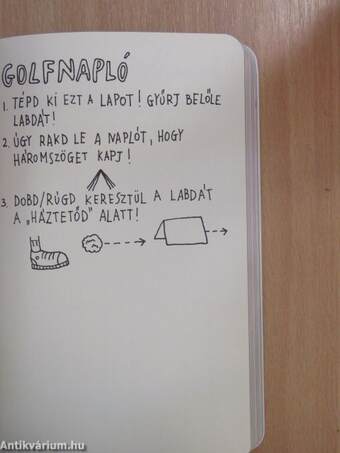 GOLFNAPLÓ
1. TÉPD KI EZT A LAPOT! GYŰRJ BELŐLE
LABDÁT!
2. ÚGY RAKD LE A NAPLÓT, HOGY
HÁROMSZÖGET KAPJ!
3. DOBD/RÚGD KERESZTÜL A LABDÁT
A „HÁZTETŐD" ALATT!
Antikvárium.hu